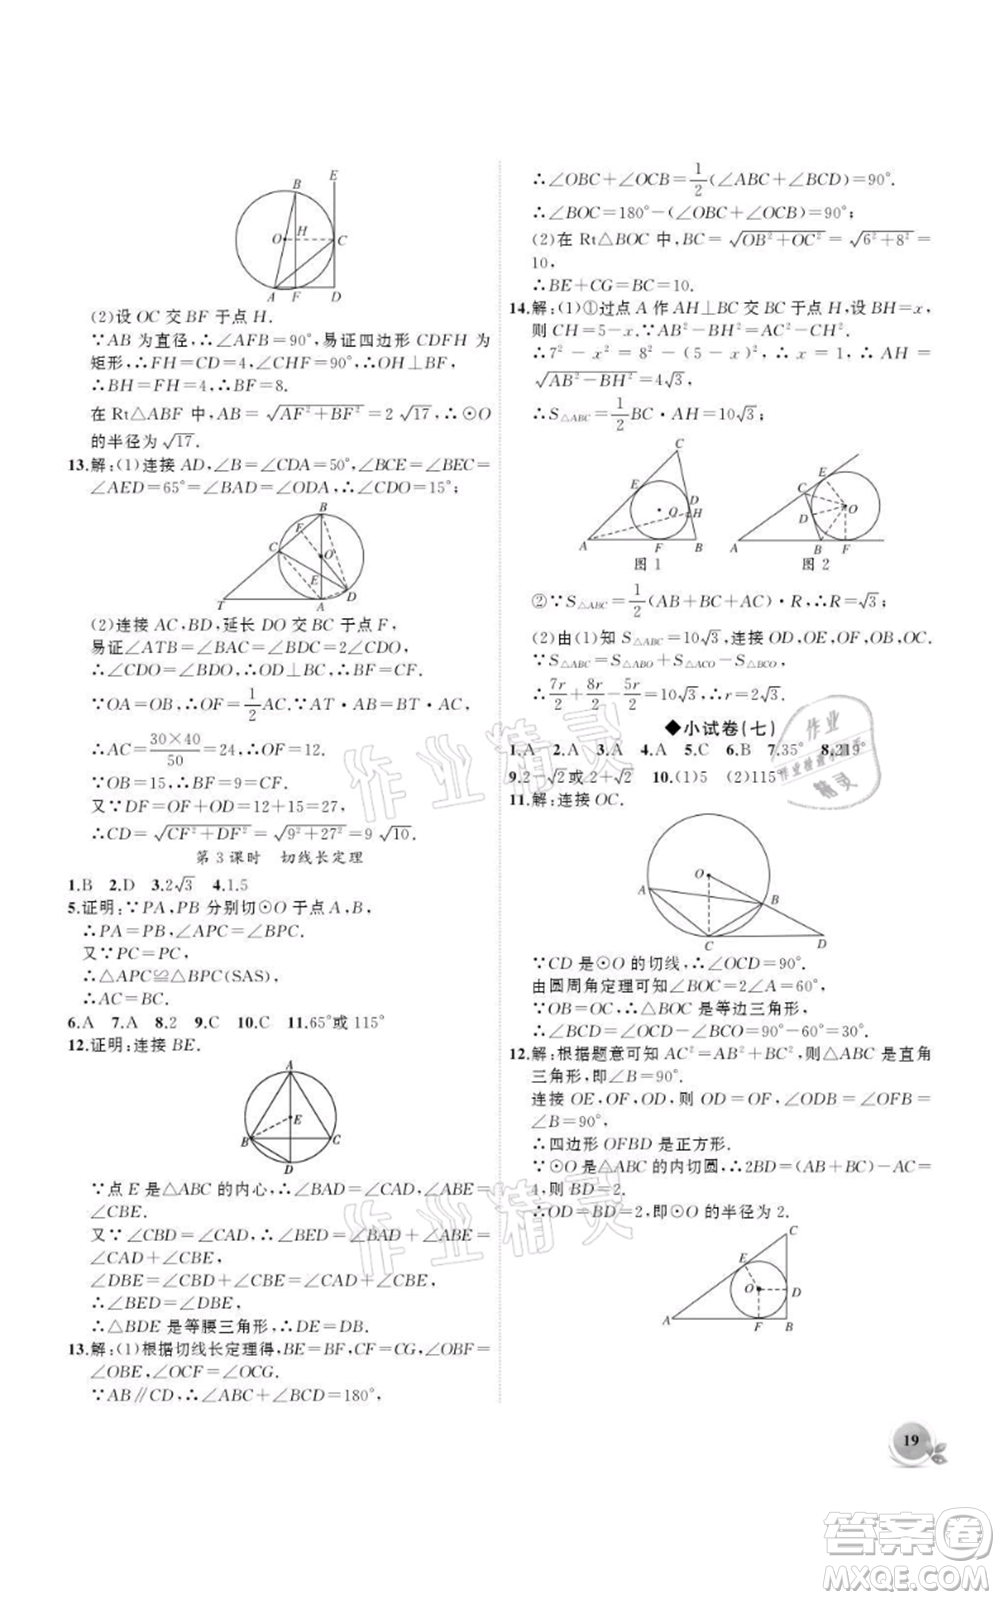 B E
O H C
A F D
(2)设 OC 交 BF 于点 H.
∵AB 为直径,∴∠AFB=90°,易证四边形 CDFH 为
矩形,∴FH=CD=4,∠CHF=90°,∴OH⊥BF,
∴BH=FH=4,∴BF=8.
在 Rt△ABF 中,AB=√(AF²+BF²)=2√17,∴⊙O
的半径为√17.
13.解:(1)连接 AD,∠B=∠CDA=50°,∠BCE=∠BEC=
∠AED=65°=∠BAD=∠ODA,∴∠CDO=15°;
B
F
C O
E D
T A
(2)连接 AC,BD,延长 DO 交 BC 于点 F,
易证∠ATB=∠BAC=∠BDC=2∠CDO,
∴∠CDO=∠BDO,∴OD⊥BC,∴BF=CF.
∵OA=OB,∴OF=1/2 AC. ∵AT·AB=AC·BT,
∴AC=30×40/50=24,∴OF=12.
∵OB=15,∴BF=CF=9.
又∵DF=OF+OD=12+15=27,
∴CD=√(CF²+DF²)=√(9²+27²)=9√10.
第3课时 切线长定理
1.B 2.D 3.2√3 4.1.5
5.证明:∵PA,PB 分别切⊙O 于点 A,B,
∴PA=PB,∠APC=∠BPC.
又∵PC=PC,
∴△APC≌△BPC(SAS),
∴AC=BC.
6.A 7.A 8.2 9.C 10.C 11.65°或 115°
12.证明:连接 BE.
A
E
B C
D
∵点 E 是△ABC 的内心,∴∠BAD=∠CAD,∠ABE=
∠CBE.
又∵∠CBD=∠CAD,∠BED=∠BAD+∠ABE=
∠CAD+∠CBE,
∠DBE=∠CBD+∠CBE=∠CAD+∠CBE,
∴∠BED=∠DBE,
∴△BDE 是等腰三角形,∴DE=DB.
13.解:(1)根据切线长定理得,BE=BF,CF=CG,∠OBF=
∠OBE,∠OCF=∠OCG.
∵AB∥CD,∴∠ABC+∠BCD=180°,
∴∠OBC+∠OCB=1/2(∠ABC+∠BCD)=90°.
∴∠BOC=180°-(∠OBC+∠OCB)=90°;
(2)在 Rt△BOC 中,BC=√(OB²+OC²)=√(6²+8²)=
10,
∴BE+CG=BC=10.
14.解:(1)①过点 A 作 AH⊥BC 交 BC 于点 H,设 BH=x,
则 CH=5-x.∵AB²-BH²=AC²-CH²,
∴7²-x²=8²-(5-x)²,∴x=1,∴AH=
√(AB²-BH²)=4√3,
∴S△ABC=1/2 BC·AH=10√3;
C
E D
Q H
A F B
图 1
E
C
O
D
A B F
图 2
②∵S△ABC=1/2(AB+BC+AC)·R,∴R=√3;
(2)由(1)知 S△ABC=10√3,连接 OD,OE,OF,OB,OC.
∵S△ABC=S△ABO+S△ACO-S△BCO,
∴7r/2+8r/2-5r/2=10√3,∴r=2√3.
◆小试卷(七)
1.A 2.A 3.A 4.A 5.C 6.B 7.35° 8.219°
9.2-√2或 2+√2 10.(1)5 (2)115°
11.解:连接 OC.
O
A B
C D
∵CD 是⊙O 的切线,∴∠OCD=90°.
由圆周角定理可知∠BOC=2∠A=60°,
∵OB=OC,∴△BOC 是等边三角形,
∴∠BCD=∠OCD-∠BCO=90°-60°=30°.
12.解:根据题意可知 AC²=AB²+BC²,则△ABC 是直角
三角形,即∠B=90°.
连接 OE,OF,OD,则 OF=OD,∠ODB=∠OFB=
∠B=90°,
∴四边形 OFBD 是正方形.
∵⊙O 是△ABC 的内切圆,∴2BD=(AB+BC)-AC=
4,则 BD=2.
∴OD=BD=2,即⊙O 的半径为 2.
C
E
O D
A F B
19
作业精灵
作业精灵
作业
作业检查小帮手
精灵
答案卷
MXQE.COM